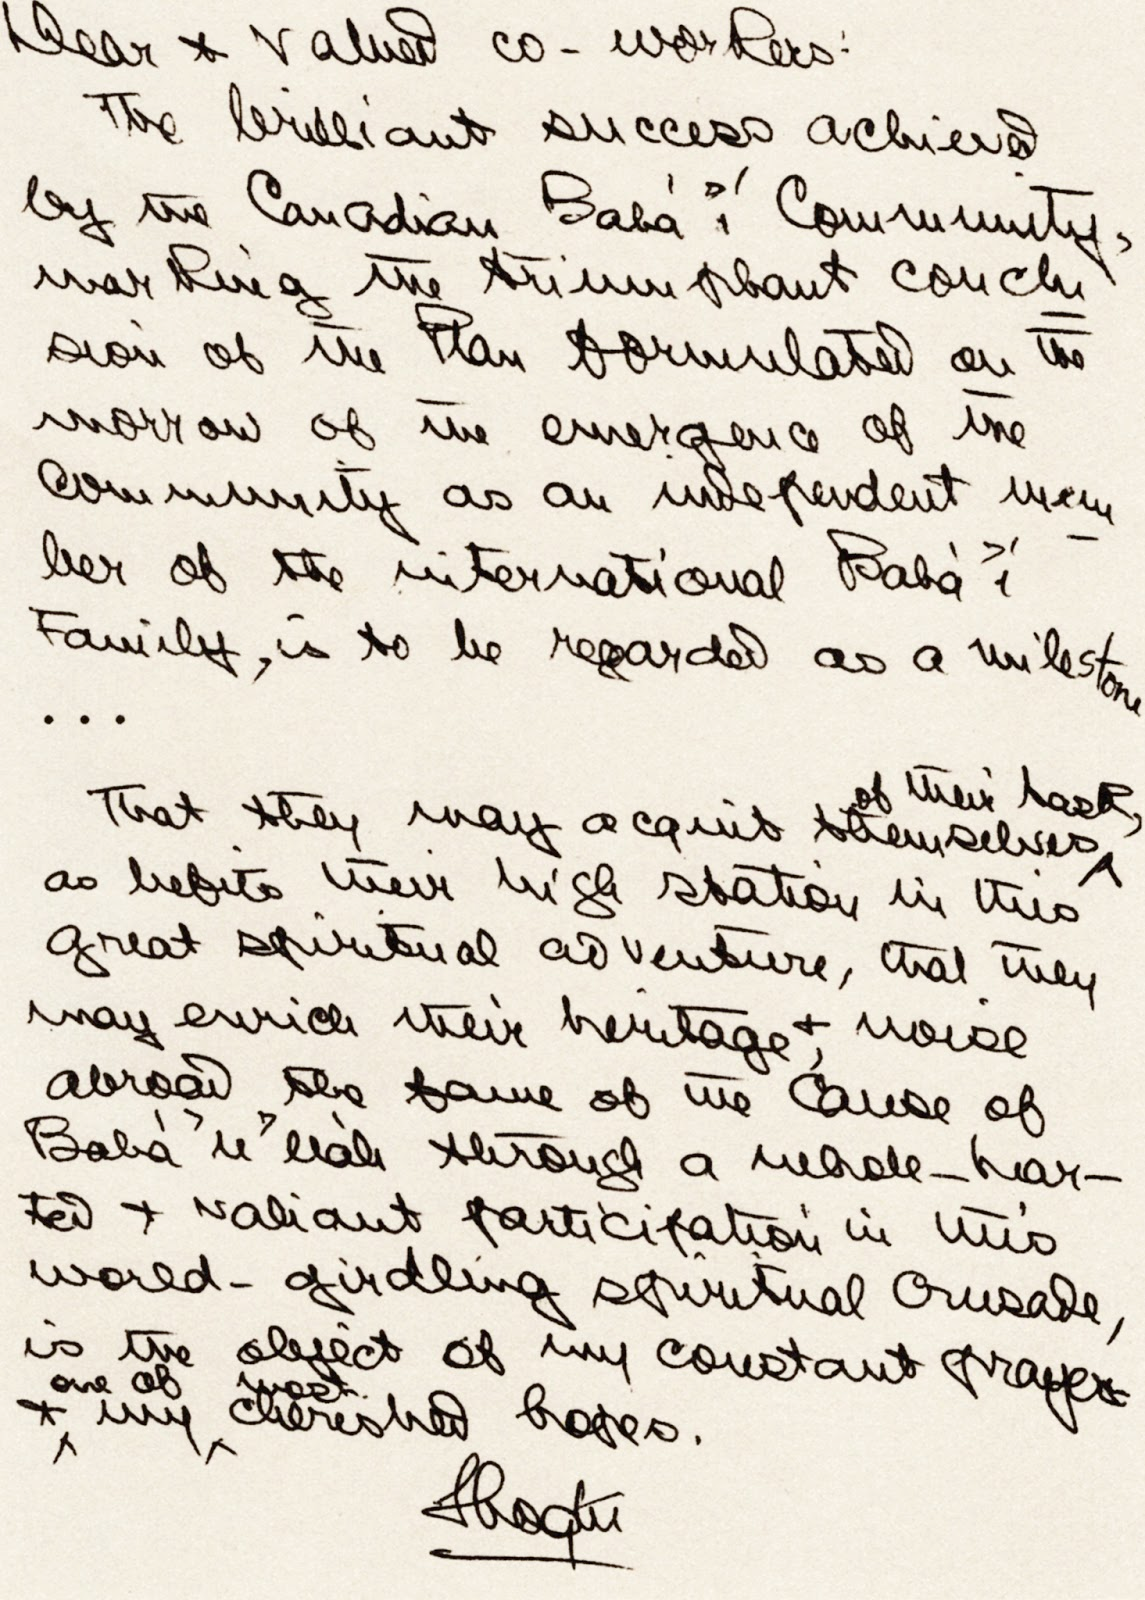 Dear & valued co-workers:
The brilliant success achieved
by the Canadian Bahá'í Community,
marking the triumphant conclu
sion of the Plan formulated on the
morrow of the emergence of the
Community as an independent mem
ber of the international Bahá'í
Family, is to be regarded as a milestone
...
That they may acquit themselves of their task,
as befits their high station in this
great spiritual adventure, that they
may enrich their heritage &, noise
abroad the fame of the Cause of
Bahá'u'lláh through a whole-hear-
ted & valiant participation in this
world-girdling spiritual Crusade,
is the object of my constant prayers
& one of my most cherished hopes.
Shoghi